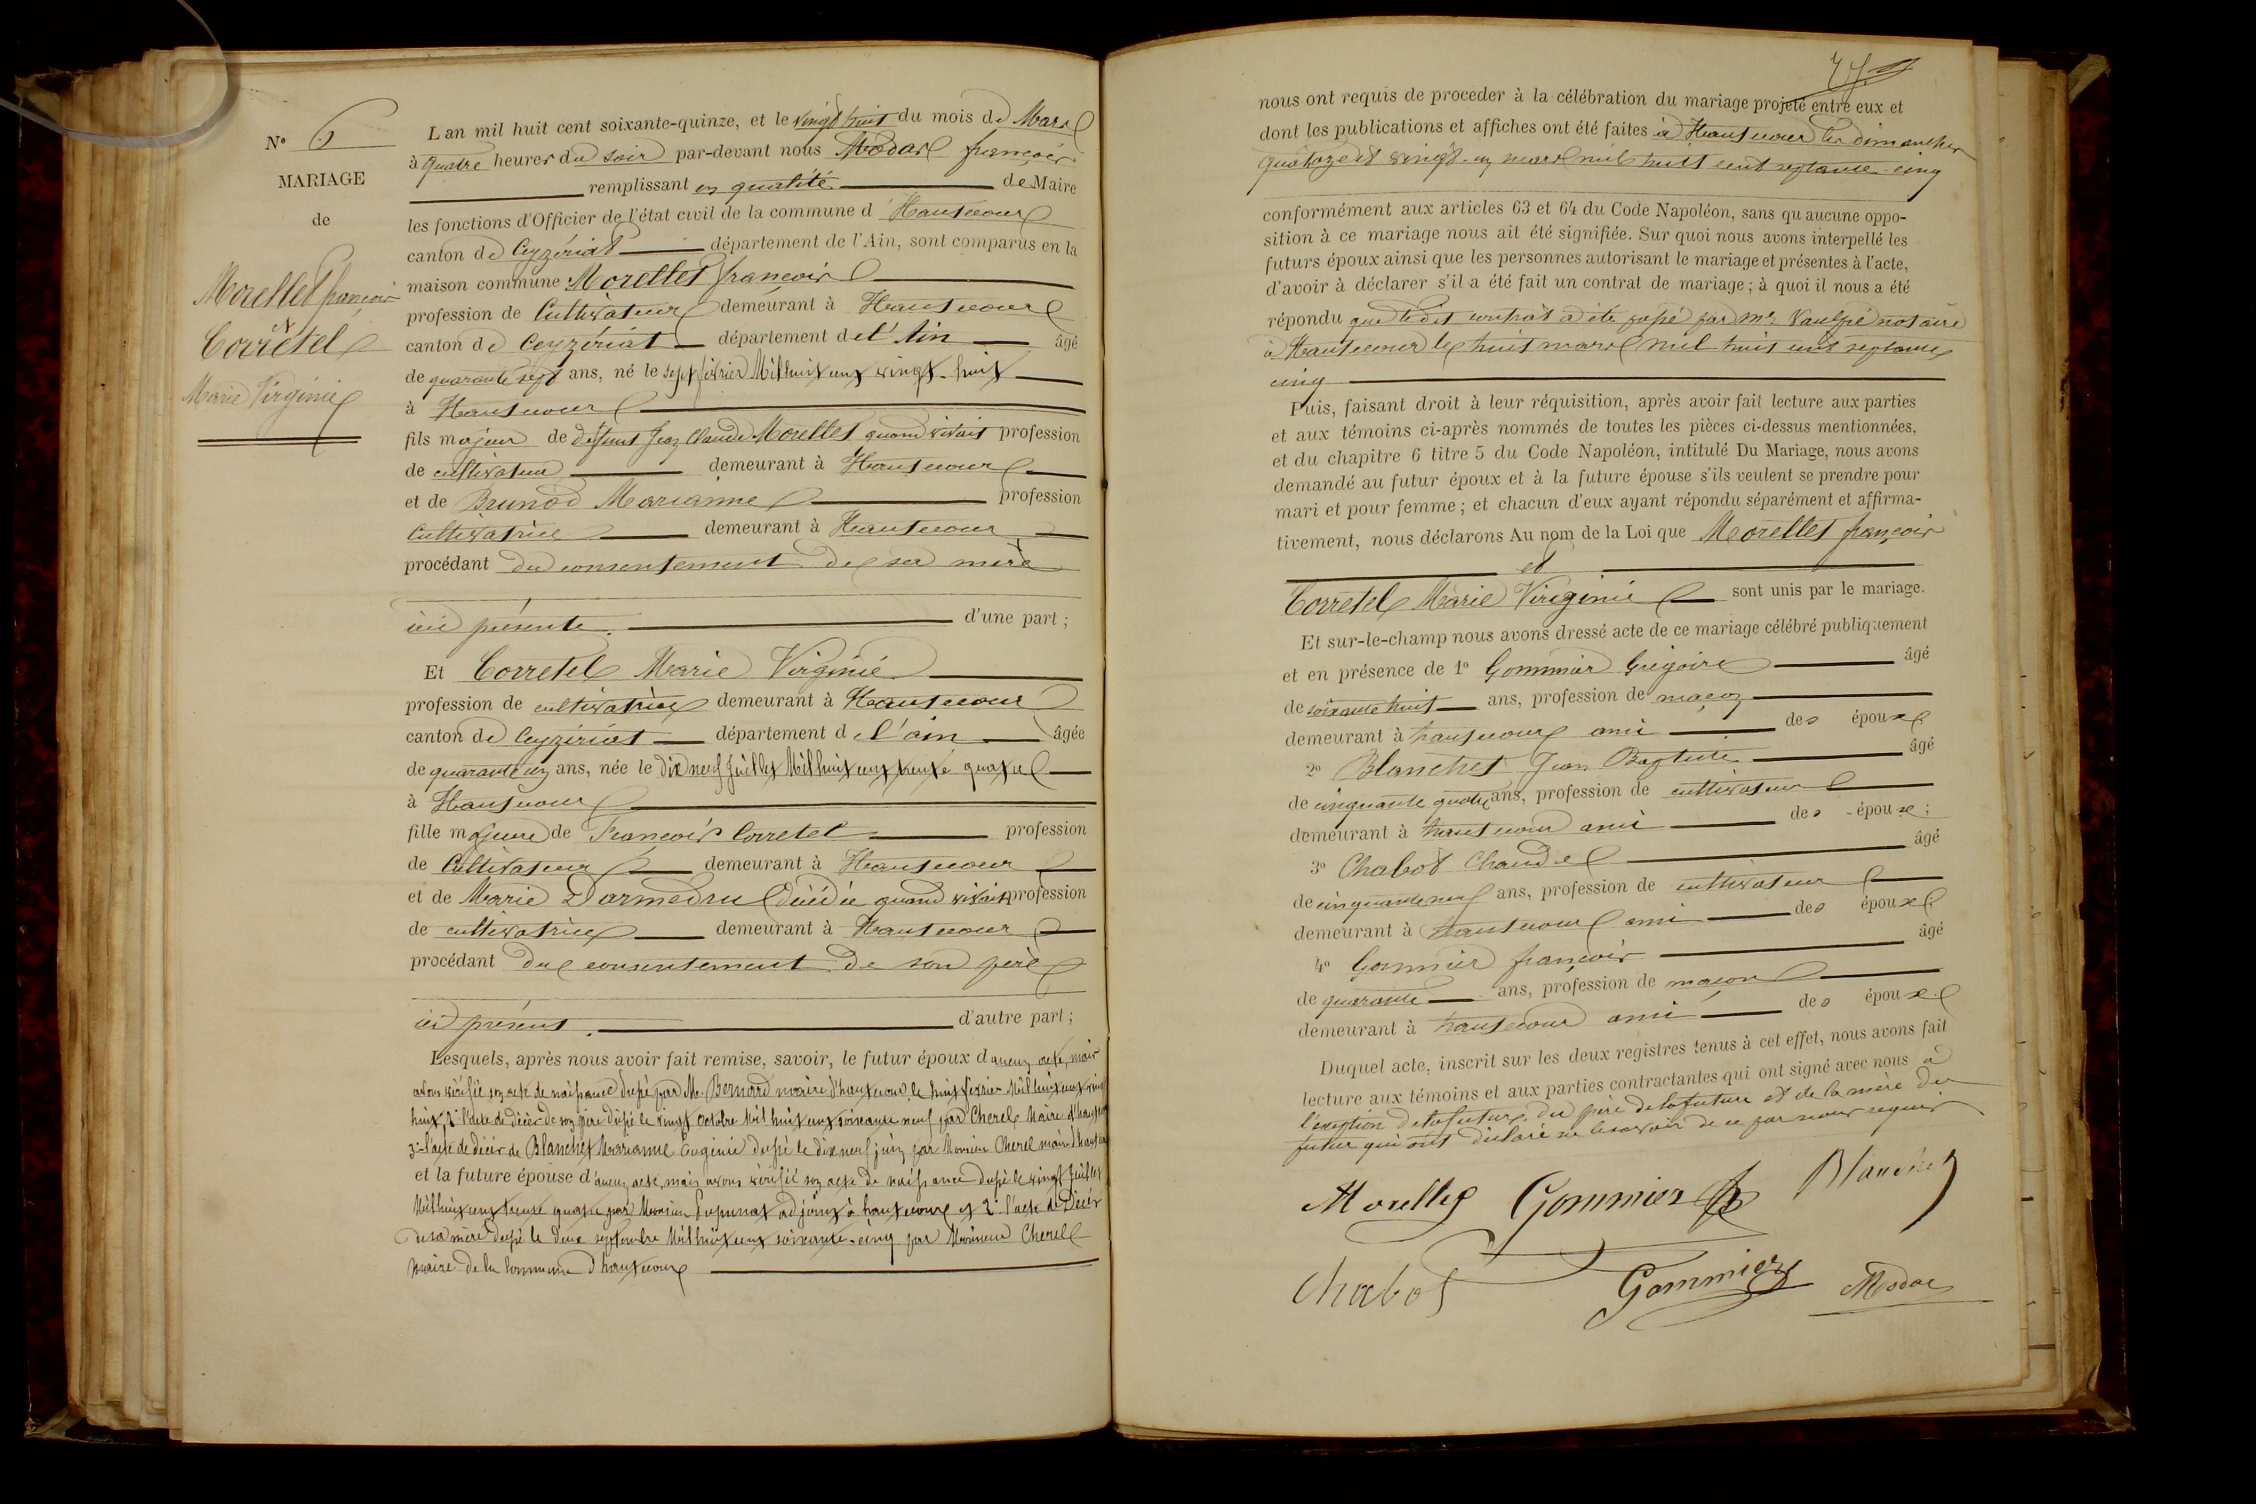 N° 6
MARIAGE
de
Morellet françois
et
Corretel
Marie Virginie
L an mil huit cent soixante-quinze, et le vingt huit du mois de Mars
à quatre heures du soir par-devant nous Modas françois
remplissant en qualité de Maire
les fonctions d'Officier de l'état civil de la commune d'Hautecour
canton de Ceyzériat département de l'Ain, sont comparus en la
maison commune Morellet françois
profession de Cultivateur demeurant à Hautecour
canton de Ceyzériat département de l'Ain âgé
de quarante sept ans, né le sept février Mil huit cent vingt-huit
à Hautecour
fils majeur de défunt Jean Claude Morellet quand vivait profession
de cultivateur demeurant à Hautecour
et de Brunod Marianne profession
Cultivatrice demeurant à Hautecour
procédant du consentement de sa mère
ici présente. d'une part ;
Et Corretel Marie Virginie
profession de cultivatrice demeurant à Hautecour
canton de Ceyzériat département de l'ain âgée
de quarante un ans, née le dix neuf Juillet Mil huit cent trente quatre
à Hautecour
fille majeure de François Corretel profession
de Cultivateur demeurant à Hautecour
et de Marie Darmedru décédée quand vivait profession
de cultivatrice demeurant à Hautecour
procédant du consentement de son père
ici présent. d'autre part ;
Lesquels, après nous avoir fait remise, savoir, le futur époux d'aucun acte, mais
avons vérifié son acte de naissance dressé par Mr. Bernard maire d'hautecour le huit février Mil huit cent vingt
huit, 2° l'acte de décès de son père dressé le vingt octobre Mil huit cent soixante neuf par Cherel Maire d'hautecour
3° l'acte de décès de Blanchet Marianne Eugénie dressé le dix neuf juin par Monsieur Cherel maire d'hautecour
et la future épouse d'aucun acte, mais avons vérifié son acte de naissance dressé le vingt Juillet
Mil huit cent trente quatre par Monsieur adjoint à hautecour et 2° l'acte de Décès
de sa mère dressé le deux septembre Mil huit cent soixante-cinq par Monsieur Cherel
maire de la Commune d'hautecour
nous ont requis de proceder à la célébration du mariage projeté entre eux et
dont les publications et affiches ont été faites à Hautecour les dimanches
quatorze et vingt-un mars mil huit cent septante-cinq
conformément aux articles 63 et 64 du Code Napoléon, sans qu aucune oppo-
sition à ce mariage nous ait été signifiée. Sur quoi nous avons interpellé les
futurs époux ainsi que les personnes autorisant le mariage et présentes à l'acte,
d'avoir à déclarer s'il a été fait un contrat de mariage ; à quoi il nous a été
répondu que ledit contrat a été passé par Mr Vaulpré notaire
à Hautecour le huit mars mil huit cent septante
cinq
Puis, faisant droit à leur réquisition, après avoir fait lecture aux parties
et aux témoins ci-après nommés de toutes les pièces ci-dessus mentionnées,
et du chapitre 6 titre 5 du Code Napoléon, intitulé Du Mariage, nous avons
demandé au futur époux et à la future épouse s'ils veulent se prendre pour
mari et pour femme ; et chacun d'eux ayant répondu séparément et affirma-
tivement, nous déclarons Au nom de la Loi que Morellet françois
et
Corretel Marie Virginie sont unis par le mariage.
Et sur-le-champ nous avons dressé acte de ce mariage célébré publiquement
et en présence de 1° Gommier Grégoire âgé
de soixante huit ans, profession de maçon
demeurant à hautecour ami des époux
2° Blanchet Jean Baptiste âgé
de cinquante quatre ans, profession de cultivateur
demeurant à hautecour ami des époux ;
3° Chabot Claude âgé
de cinquante neuf ans, profession de cultivateur
demeurant à hautecour ami des époux
4° Gommier françois âgé
de quarante ans, profession de maçon
demeurant à hautecour ami des époux
Duquel acte, inscrit sur les deux registres tenus à cet effet, nous avons fait
lecture aux témoins et aux parties contractantes qui ont signé avec nous à
l'exeption de la future, du père de la future et de la mère du
futur qui ont déclaré ne le savoir de ce par nous requis
Morellet Gommier Blanchet
Chabot Gommier Modas